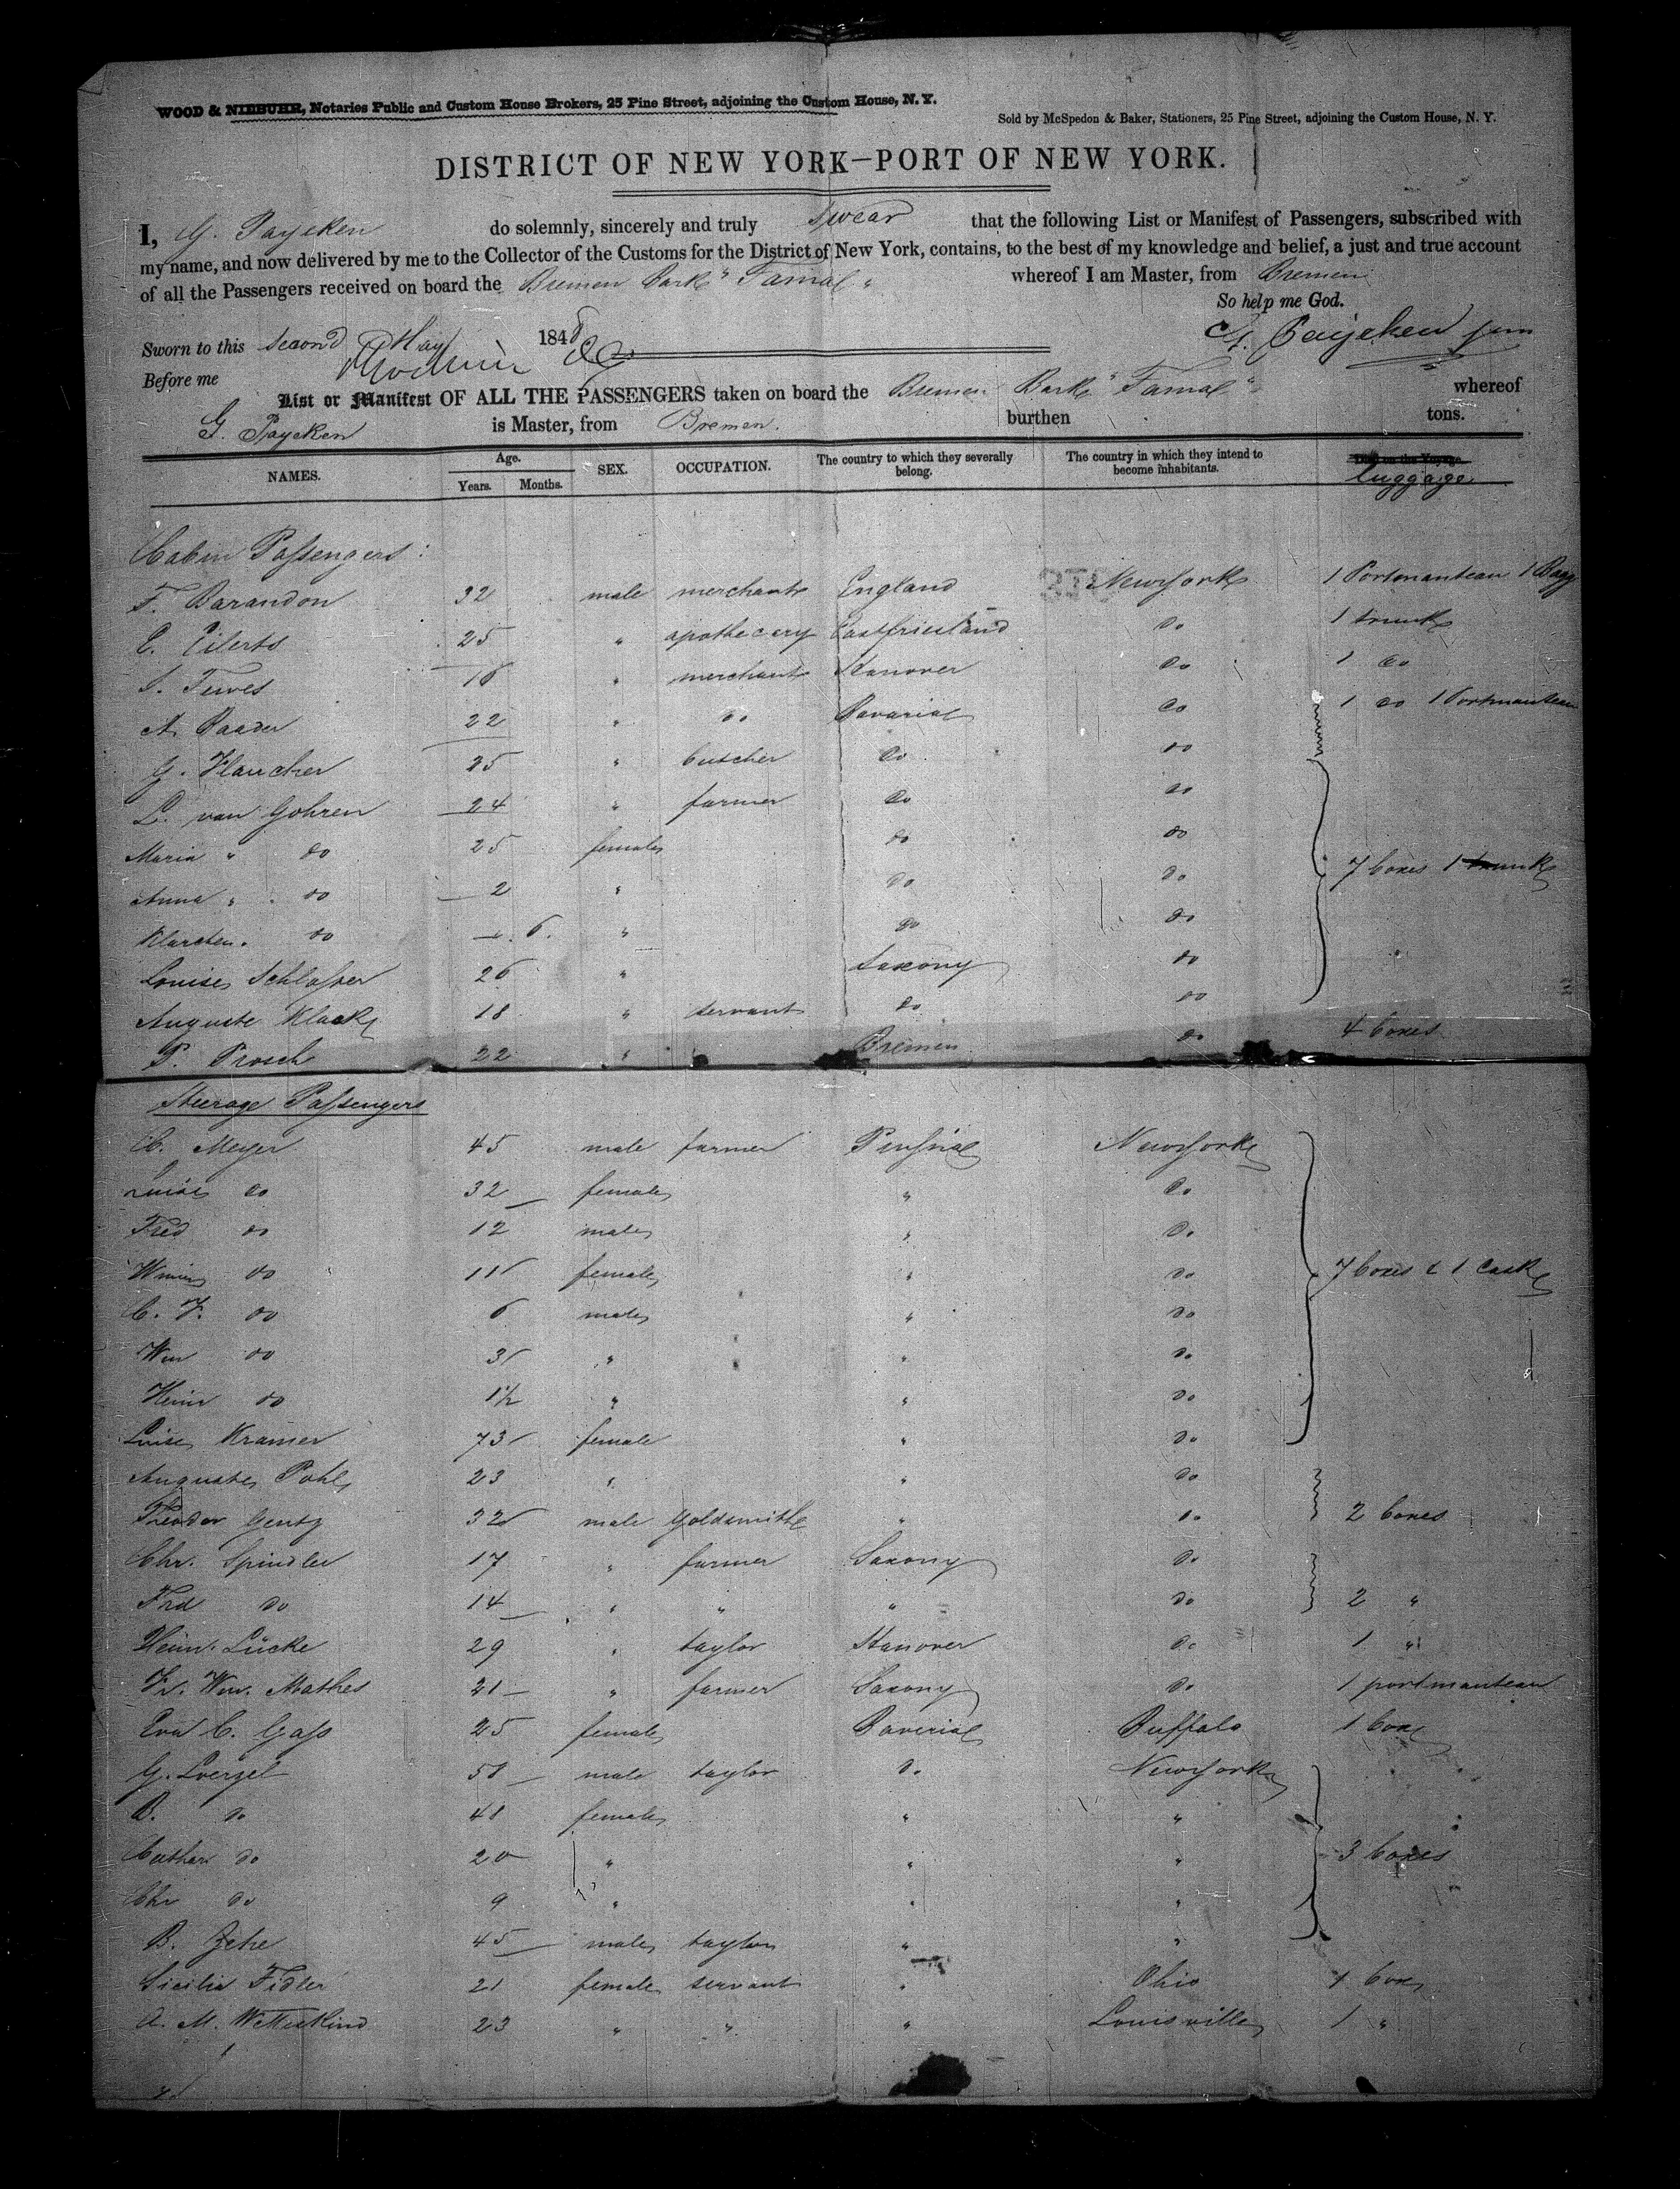 WOOD & NIEBUHR, Notaries Public and Custom House Brokers, 25 Pine Street, adjoining the Custom House, N. Y.
Sold by McSpedon & Baker, Stationers, 25 Pine Street, adjoining the Custom House, N. Y.
DISTRICT OF NEW YORK—PORT OF NEW YORK.
I, G. Paycken do solemnly, sincerely and truly swear that the following List or Manifest of Passengers, subscribed with
my name, and now delivered by me to the Collector of the Customs for the District of New York, contains, to the best of my knowledge and belief, a just and true account
of all the Passengers received on board the Bremen Bark "Famal" whereof I am Master, from Bremen
So help me God.
Sworn to this second May 1848
Before me
List or Manifest OF ALL THE PASSENGERS taken on board the Bremen Bark "Famal" whereof
G. Paycken is Master, from Bremen. burthen tons.
NAMES. Age. Years. Months. SEX. OCCUPATION. The country to which they severally belong. The country in which they intend to become inhabitants. Luggage
Cabin Passengers:
F. Barandon 32 male merchant England New York 1 Portmanteau 1 Bagg
E. Eilerts 25 " apothecary Eastfriesland do 1 trunk
S. Tewes 18 " merchant Hanover do 1 do
A. Baader 22 " do Bavaria do 1 do 1 Portmanteau
G. Haucher 25 " butcher do do
L. van Gohren 24 " farmer do do
Maria " do 25 female do do 7 boxes 1 trunk
Anna " do 2 " do do
Klarchen " do 6. " do do
Louise Schlosser 26 " Saxony do
Auguste Klack 18 " servant do do
P. Prosch 22 " Bremen do 4 boxes
Steerage Passengers
C. Meyer 45 male farmer Prussia New York
Luise do 32 female " do
Fred do 12 male " do
Wmine do 11 female " do 7 boxes & 1 Cask
C. F. do 6 male " do
Wm do 3 " " do
Heinr do 1½ " " do
Luise Kramer 73 female " do
Auguste Pohl 23 " " do
Theodor Gentz 32 male Goldsmith " do 2 boxes
Chr. Spindler 17 " farmer Saxony do
Frd do 14 " " " do 2 "
Heinr. Lücke 29 " taylor Hanover do 1 "
Fr. Wm. Mathes 21 " farmer Saxony do 1 portmanteau
Eva C. Gass 25 female Baveria Buffalo 1 box
G. Loergel 51 male taylor do New York
B. do 41 female " "
Cathar do 20 " " " 3 boxes
Chr do 9 " " "
B. Zehe 45 male taylor " "
Sicilia Fidler 21 female servant " Ohio 1 box
A. M. Wettekind 23 " " " Louisville 1 "